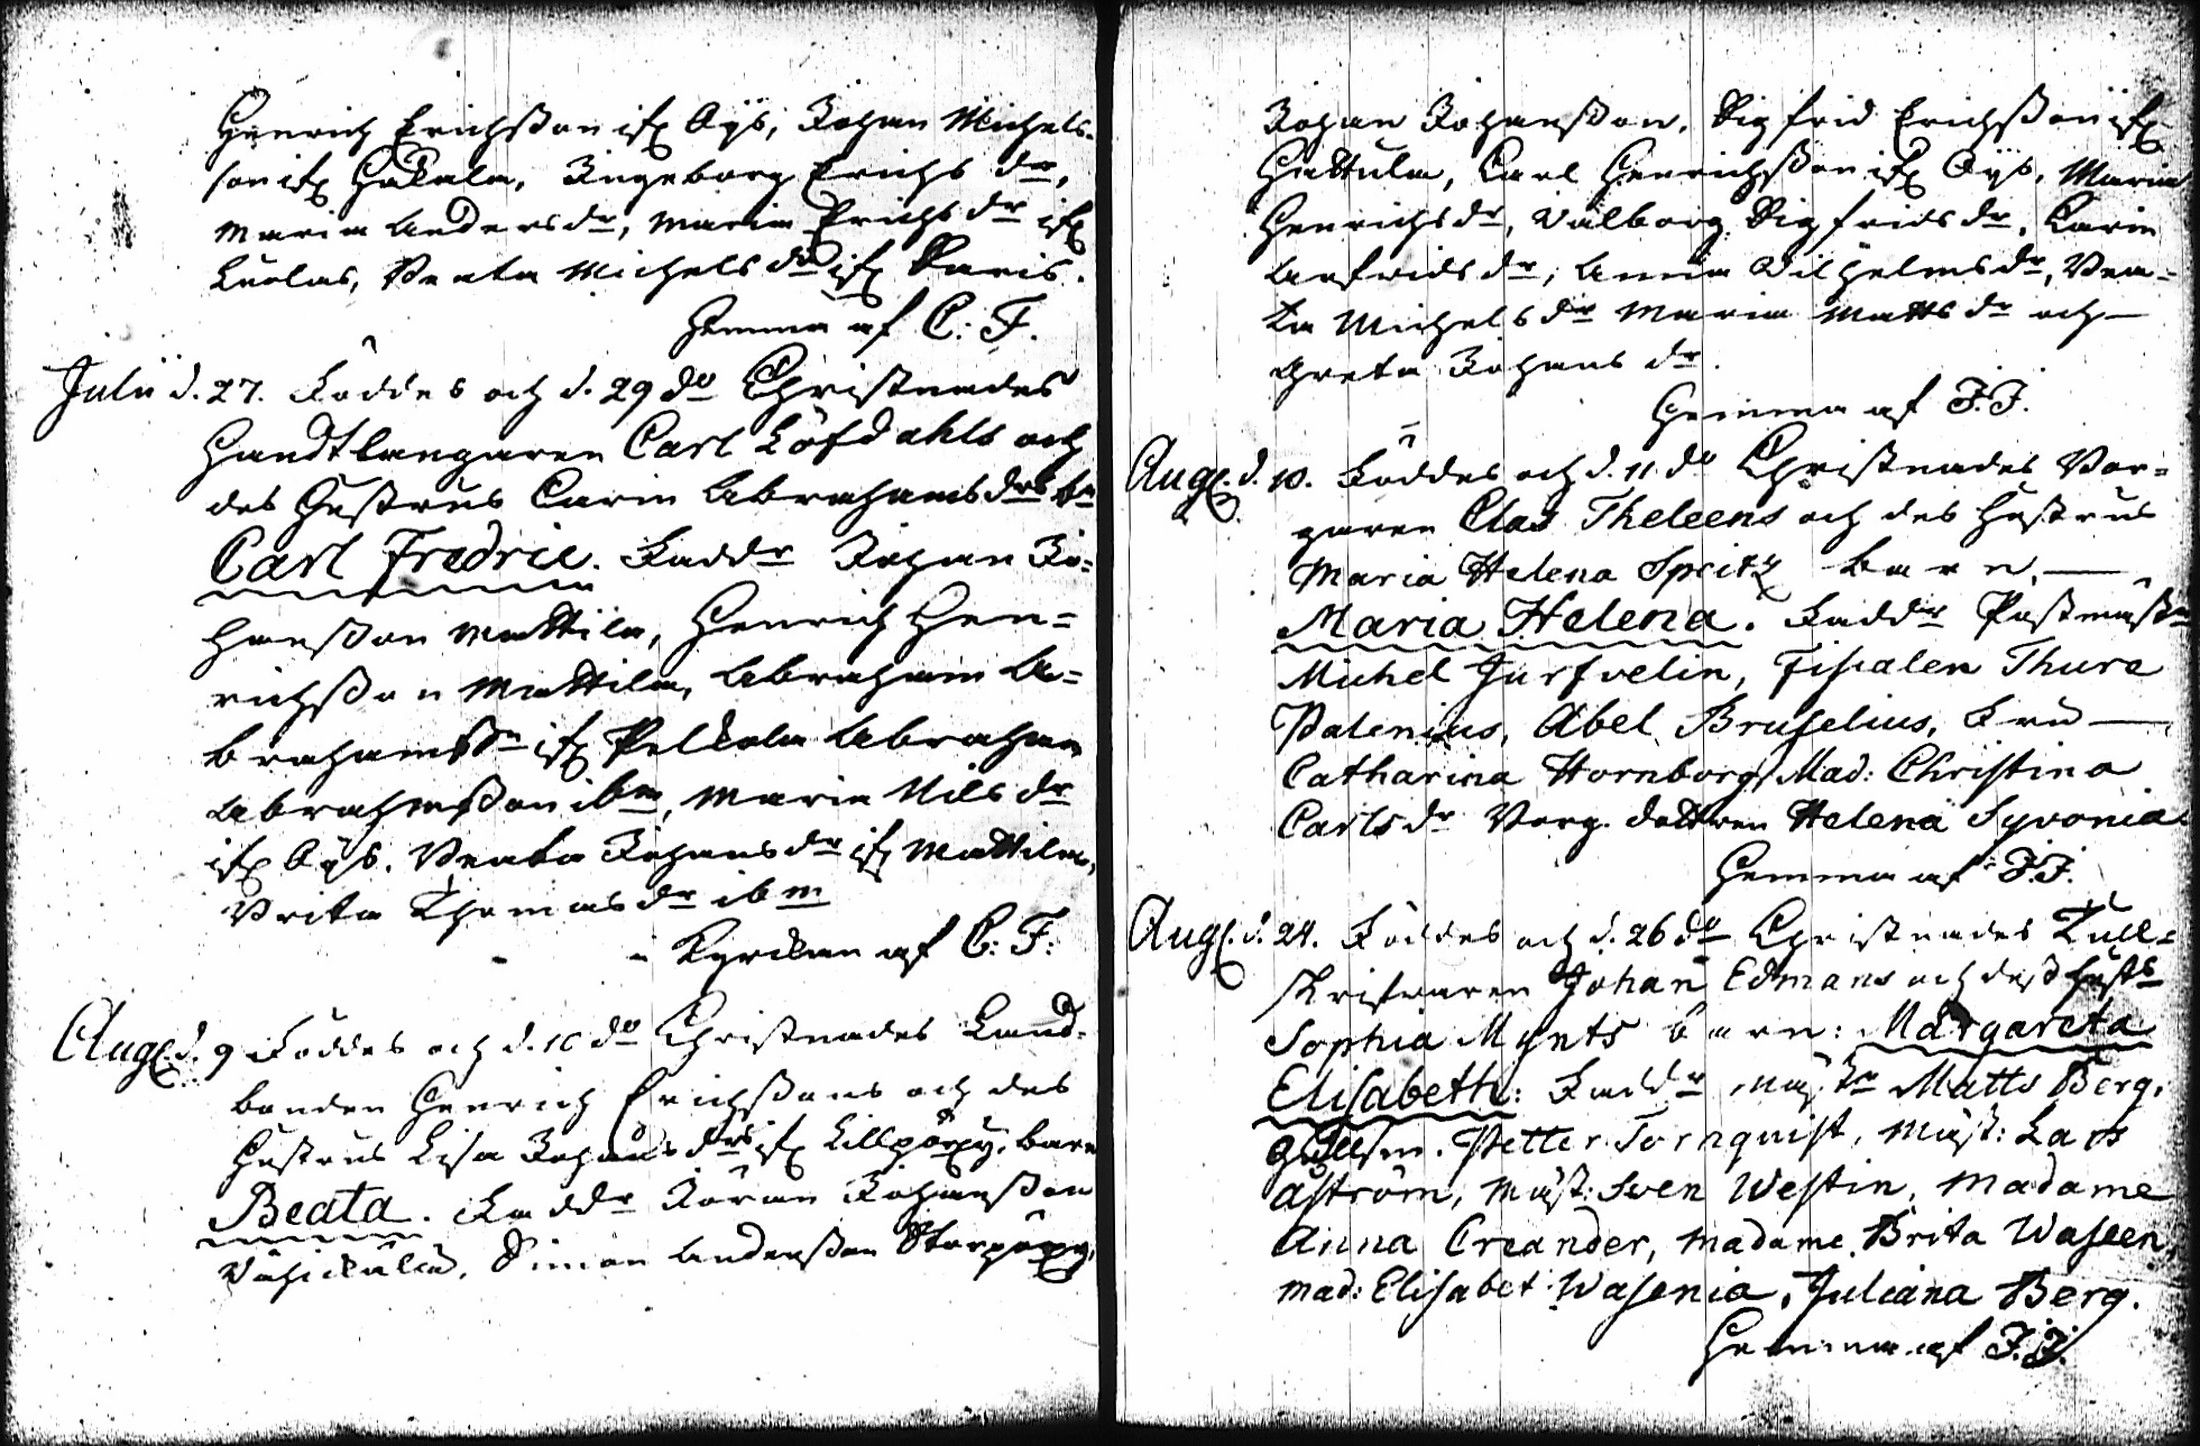 Henrich Erichsson ifr. Öÿs, Johan Michels-
son ifr. Hakala, Ingeborg Erichs dr,
Maria Anders dr, Maria Erichs dr ifr.
Luolas, Beata Michels dr ifr. Saris.
Hemma af C: F.
Julii d. 27. Föddes och d. 29 do Christnades
Handtlangaren Carl Löfdahls och
des Hustrus Carin Abrahams drs bn
Carl Fredric. Faddr Johan Jo-
hansson Mattila, Henrich Hen=
richsson Mattila, Abraham A=
brahamss ifr. Pelkola Abraham
Abrahmsson ibm, Maria Nils dr
ifr. Öÿs. Beata Johans dr ifr. Mattila,
Brita Thomas dr ibm
Kyrckan af C: F:
Aug. d. 9 Föddes och d. 10 do Christnades Land-
bonden Henrich Erichssons och des
Hustrus Lisa Johans drs ifr. Lillpöxy, barn
Beata. Faddr Jöran Johansson
Simon Andersson Storpöxy,
Johan Johansson, Sigfrid Erichsson ifr.
Hattula, Carl Henrichsson ifr. Öÿs, Maria
Henrichs dr, Valborg Sigfrids dr, Carin
Anfrids dr, Anna Vilhelms dr, Bea=
ta Michels dr Maria Matts dr och
Greta Johans dr.
Hemma af J. J.
Aug. d. 10. Föddes och d. 11 do Christnades Bor=
garen Clas Theleens och des Hustrus
Maria Helena Spritz barn,
Maria Helena. Faddr Postmäst
Michel Jurfvelin, Fiscalen Thure
Palenius, Abel Bruselius, Fru
Catharina Hornborg, Mad: Christina
Carls dr Borg. dottren Helena Syvonia
Hemma af J. J.
Aug. d. 24. Föddes och d. 26 do Christnades Tull=
skrifvaren Johan Edmans och dess Husts
Sophia Mynts barn: Margareta
Elisabeth: Faddr Mäst Matts Berg,
Petter Tornquist, Mäst: Lars
Åström, Mäst: Sven Westin, Madame
Anna Creander, Madame Brita Waseen,
Mad: Elisabet Wasenia, Juliana Berg.
Hemma af J. J.